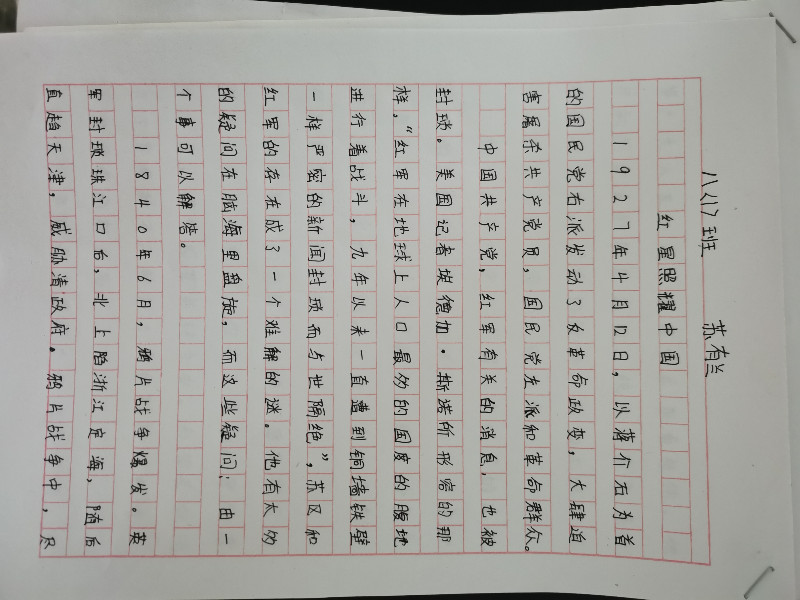 八〈1〉班 苏有兰
红星照耀中国
1927年4月12日，以蒋介石为首
的国民党右派发动了反革命政变，大肆迫
害屠杀共产党员，国民党左派和革命群众。
中国共产党，红军有关的消息，也被
封琐。美国记者埃德加·斯诺所形容的那
样，“红军在地球上人口最多的国度的腹地
进行着战斗，九年以来一直遭到铜墙铁壁
一样严密的新闻封琐而与世隔绝”，苏区和
红军的存在成了一个难解的谜。他有太多
的疑问在脑海里盘旋，而这些疑问；由一
个事可以解答。
1840年6月，鸦片战争爆发。英
军封琐珠江口后，北上陷浙江定海，随后
直趋天津，威胁清政府。鸦片战争中，尽